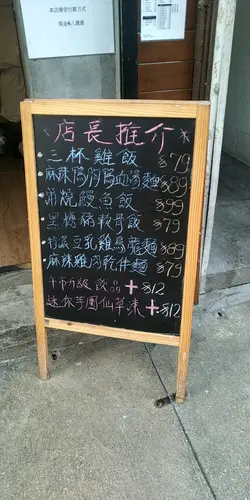 本店接受付款方式：
現金&八達通
店長推介
三杯雞飯 $79
麻辣鴨胸鴨血湯麵 $89
蒲燒鰻魚飯 $99
黑糖豬軟骨飯 $79
豆乳雞烏龍麵 $89
麻辣雞肉乾伴麵 $79
升級 飲品 + $12
迷你芋圓仙草凍 + $12